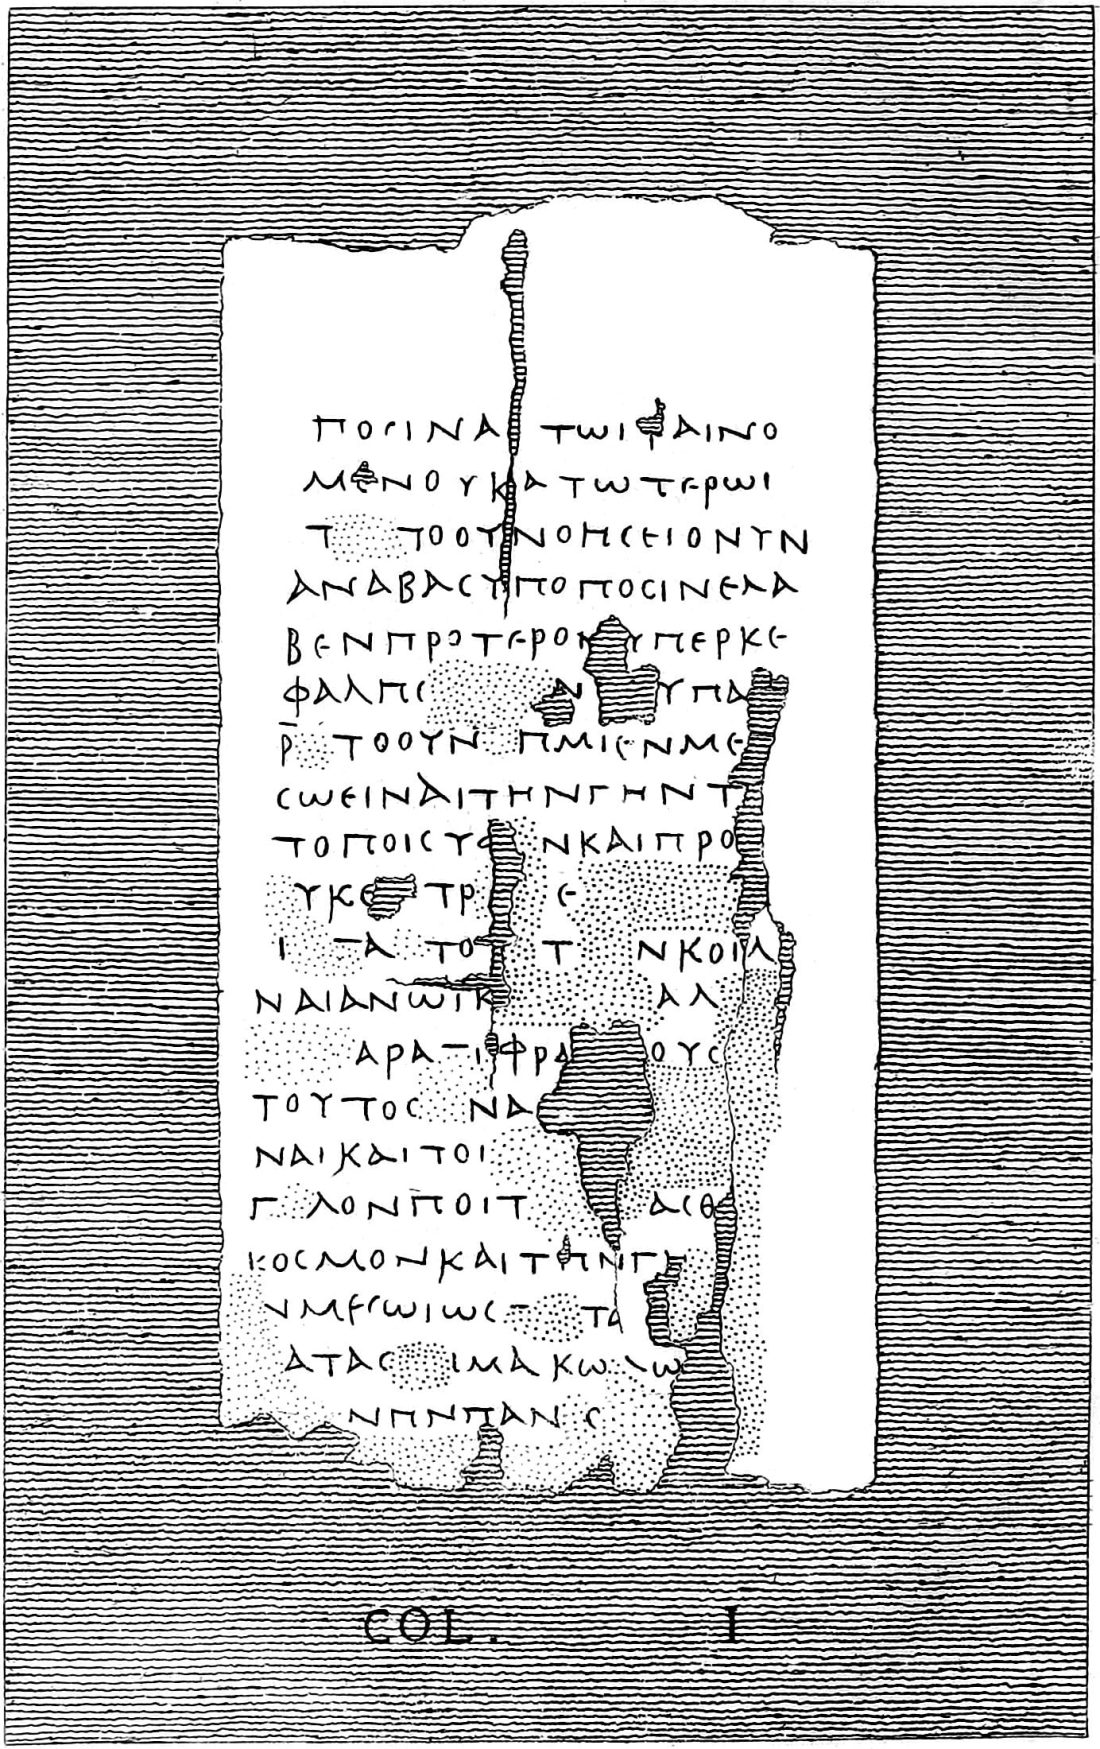 ΠΟΣΙΝΑ ΤΩΙΦΑΙΝΟ
ΜΕΝΟΥΚΑΤΩΤΕΡΩΙ
Τ ΤΟΟΥΝΟΗСΕΙΟΝΥΝ
ΑΝΑΒΑСΥΠΟΠΟСΙΝΕΛΑ
ΒΕΝΠΡΟΤΕΡΟΝΥΠΕΡΚΕ
ΦΑΛΗС ΑΝ ΥΠΑ
Ρ ΤΟΟΥΝ ΗΜΙΕΝΜΕ
СΩΕΙΝΑΙΤΗΝΓΗΝΤ
ΤΟΠΟΙСΥΦ ΝΚΑΙΠΡΟ
ΥΚΕ ΤΡ Ε
Ι ΤΑ ΤΟ Τ ΝΚΟΙΛ
ΝΑΙΑΝΩΙΚ ΑΛ
ΑΡΑ ΤΙΦΡΑ ΟΥС
ΤΟΥΤΟС ΝΑ
ΝΑΙΚΑΙΤΟΙ
Γ ΛΟΝΠΟΙΤ ΑСΘ
ΚΟСΜΟΝΚΑΙΤΗΝΓΗ
ΝΜΕСΩΙΩС ΤΑ
ΑΤΑС ΙΜΑΚΩ Ω
ΝΗΝΠΑΝ С
COL. I